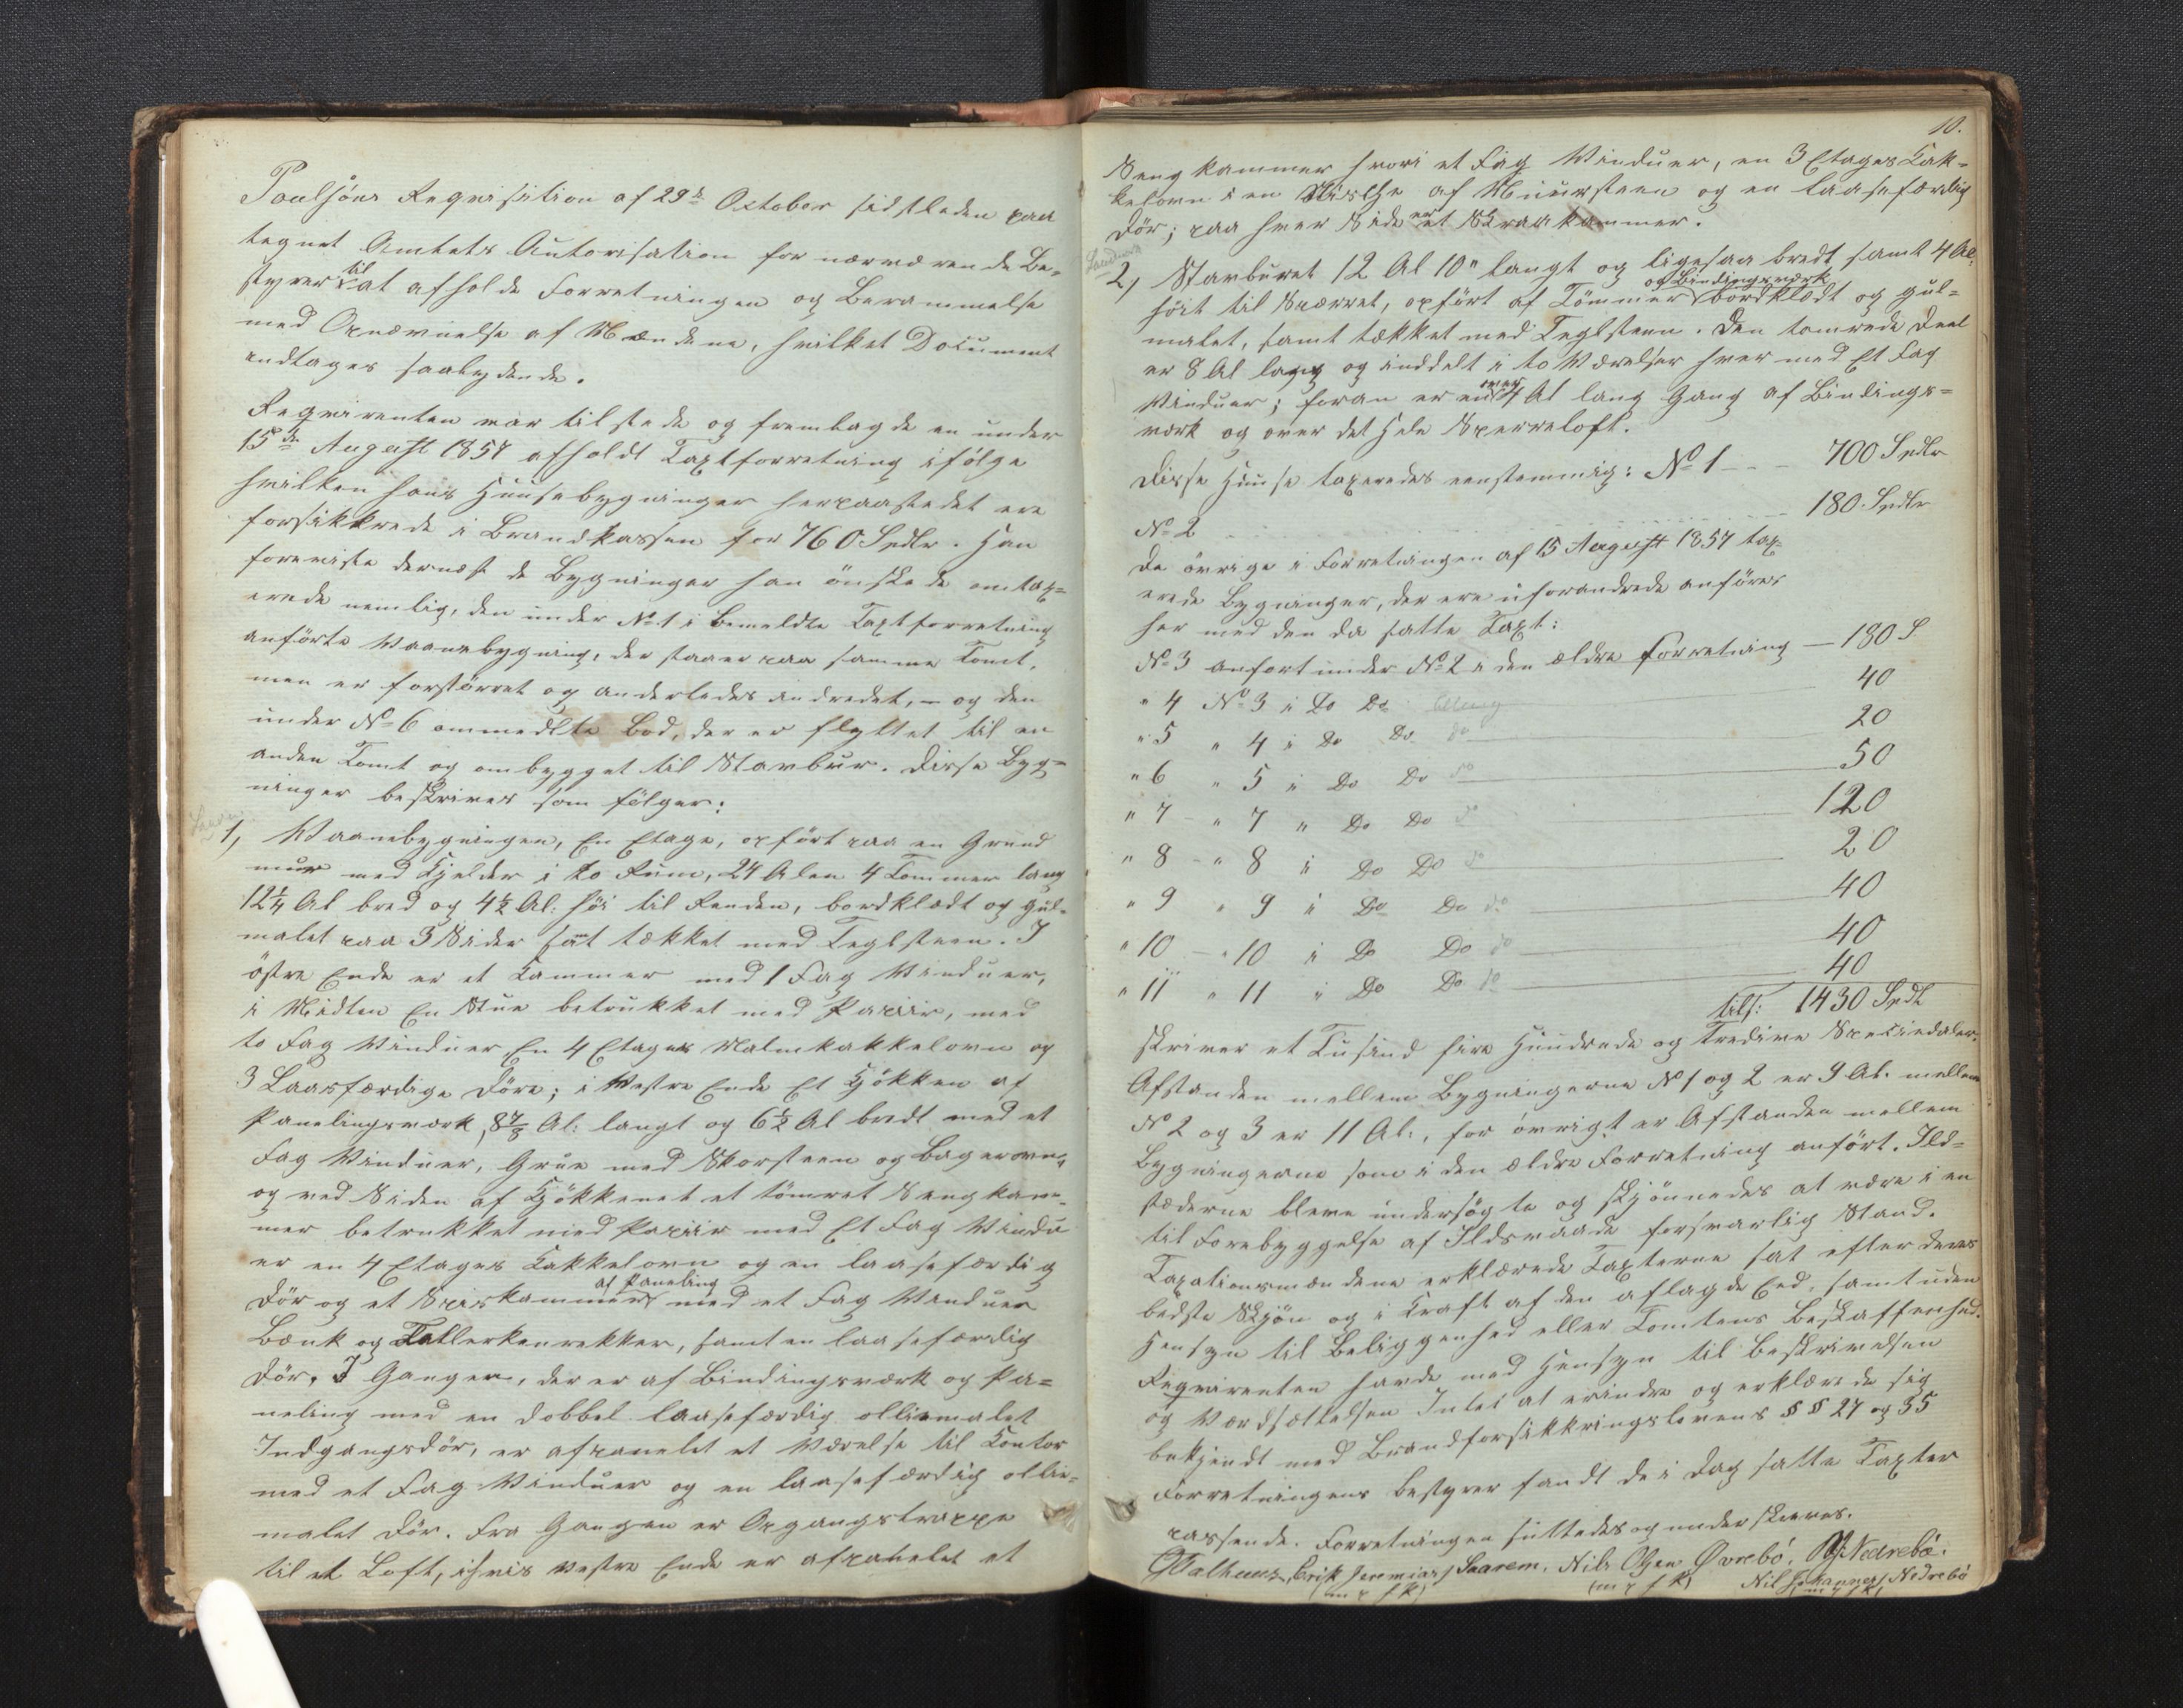 Poulsöns Reqvisition af 29de October sidstleden paa
tegnet Amtets Autorisation for nærværende Be-
styrer til at afholde Forretningen og Berammelse
med Opnævnelse af Mændene, hvilket Document
indtages saalydende.
Reqvirenten var tilstede og fremlagde en under
15de August 1857 afholdt Taxtforretning ifölge
hvilken hans Huusebygninger herpaastedet ere
forsikkrede i Brandkassen for 760 Spdlr. Han
foreviste dernæst de Bygninger han önskede omtax-
erede nemlig, den under No 1 i bemeldte Taxtforretning
anförte Vaanebygning, der staaer paa samme Tomt,
men er forstörret og anderledes indredet, – og den
under No 6 ommeldte Bod, der er flyttet til en
anden Tomt og ombygget til Stavbur. Disse Byg-
ninger beskrives som fölger:
1, Vaanebygningen, En Etage, opfört paa en Grund
muur med Kjelder i to Rum, 24 Alen 4 Tommer lang
12¼ Al bred og 4½ Al: höi til Randen, bordklædt og gul-
malet paa 3 Sider samt tækket med Teglsteen. I
östre Ende er et Kammer med 1 Fag Vinduer,
i Midten En Stue betrukket med Papiir, med
to Fag Vinduer En 4 Etages Malmkakkelovn og
3 Laasfærdige Döre; i Vestre Ende Et Kjökken af
Panelingsværk, 8⅞ Al: langt og 6½ Al bredt med et
Fag Vinduer, Grue med Skorsteen og Bagerovn,
og ved Siden af Kjökkenet et tömret Sengkam-
mer betrukket med Papiir med Et Fag Vindu
er en 4 Etages Kakkelovn og en laasefærdig
Dör og et Spiskammer af Paneling med et Fag Vinduer
Bænk og Tallerkenrekker, samt en laasefærdig
Dör. I Gangen, der er af Bindingsværk og Pa-
neling med en dobbel laasefærdig olliemalet
Indgangsdör, er afpanelet et Værelse til Kontor
med et Fag Vinduer og en laasefærdig ollie-
malet Dör. Fra Gangen er Opgangstrappe
til et Loft, i hvis vestre Ende er afpanelet et
10.
Sengkammer hvori et Fag Vinduer, en 3 Etages Kak-
kelovn i en Nische af Muursteen og en laasefærdig
Dör; paa hver Side er et Skraakammer.
2, Stavburet 12 Al 10" langt og ligesaa bredt samt 4 Al:
höit til Spærret, opfört af Tömmer og Bindingsværk bordklædt og gul-
malet, samt tækket med Teglsteen. Den tomrede Deel
er 8 Al lang og inddelt i to Værelser hver med Et Fag
Vinduer; foran er en over 4 Al lang Gang af Bindings-
værk og over det Hele Sperreloft.
Disse Huuse taxeredes eenstemmig: No 1 - - - 700 Spdlr
No 2 180 Spdlr
De övrige i Forretningen af 15 August 1857 tax-
erede Bygninger, der ere uforandrede anföres
her med den da satte Taxt:
No 3 anfört under No 2 i den ældre Forretning — 180 S
" 4 No 3 i Do Do 40
" 5 " 4 i Do Do do 20
" 6 " 5 i Do Do do 50
" 7 - " 7 " Do Do do 120
" 8 - " 8 i Do Do do 20
" 9 " 9 i Do Do do 40
" 10 - " 10 i Do Do do 40
" 11 " 11 i Do Do do 40
tils: 1430 Spdl
skriver et Tusind fire Hundrede og Tredive Speciedaler.
Afstanden mellem Bygningerne No 1 og 2 er 9 Al. mellem
No 2 og 3 er 11 Al:, for övrigt er Afstanden mellem
Bygningerne som i den ældre Forretning anfört. Ild-
stæderne bleve undersögte og skjönnedes at være i en
til Forebyggelse af Ildsvaade forsvarlig Stand.
Taxationsmændene erklærede Taxterne sat efter deres
bedste Skjön og i Kraft af den aflagde Eed, samt uden
Hensyn til Beliggenhed eller Tomtens Beskaffenhed.
Reqvirenten havde med Hensyn til Beskrivelsen
og Værdsættelsen Intet at erindre og erklærede sig
bekjendt med Brandforsikkringslovens §§ 27 og 35
Forretningens Bestyrer fandt de i Dag satte Taxter
passende. Forretningen sluttedes og underskreves.
Dalhuus, Erik Jeremias Saarem, Nils Olsen Øvrebö. Nedrebö.
(m p f K) (m p f K) Nil Johannes Nedrebö
(m p f K)